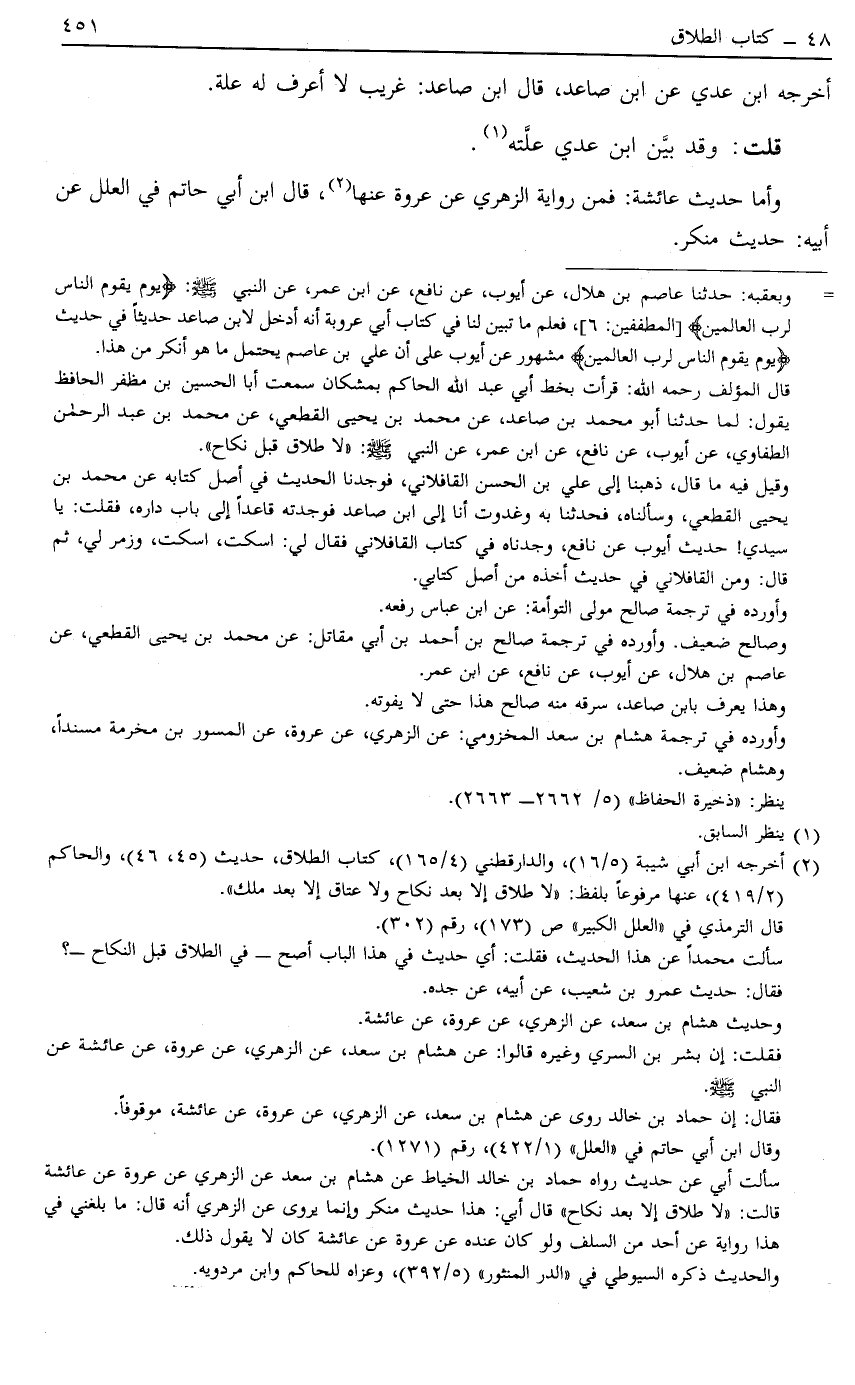 ٤٨ ـ كتاب الطلاق ٤٥١
أخرجه ابن عدي عن ابن صاعد، قال ابن صاعد: غريب لا أعرف له علة.
قلت: وقد بيَّن ابن عدي علَّته(١).
وأما حديث عائشة: فمن رواية الزهري عن عروة عنها(٢)، قال ابن أبي حاتم في العلل عن
أبيه: حديث منكر.
= وبعقبه: حدثنا عاصم بن هلال، عن أيوب، عن نافع، عن ابن عمر، عن النبي ﷺ: ﴿يوم يقوم الناس
لرب العالمين﴾ [المطففين: ٦]، فعلم ما تبين لنا في كتاب أبي عروبة أنه أدخل لابن صاعد حديثاً في حديث
﴿يوم يقوم الناس لرب العالمين﴾ مشهور عن أيوب على أن علي بن عاصم يحتمل ما هو أنكر من هذا.
قال المؤلف رحمه الله: قرأت بخط أبي عبد الله الحاكم بمشكان سمعت أبا الحسين بن مظفر الحافظ
يقول: لما حدثنا أبو محمد بن صاعد، عن محمد بن يحيى القطعي، عن محمد بن عبد الرحمٰن
الطفاوي، عن أيوب، عن نافع، عن ابن عمر، عن النبي ﷺ: «لا طلاق قبل نكاح».
وقيل فيه ما قال، ذهبنا إلى علي بن الحسن القافلاني، فوجدنا الحديث في أصل كتابه عن محمد بن
يحيى القطعي، وسألناه، فحدثنا به وغدوت أنا إلى ابن صاعد فوجدته قاعداً إلى باب داره، فقلت: يا
سيدي! حديث أيوب عن نافع، وجدناه في كتاب القافلاني فقال لي: اسكت، اسكت، وزمر لي، ثم
قال: ومن القافلاني في حديث أخذه من أصل كتابي.
وأورده في ترجمة صالح مولى التوأمة: عن ابن عباس رفعه.
وصالح ضعيف. وأورده في ترجمة صالح بن أحمد بن أبي مقاتل: عن محمد بن يحيى القطعي، عن
عاصم بن هلال، عن أيوب، عن نافع، عن ابن عمر.
وهذا يعرف بابن صاعد، سرقه منه صالح هذا حتى لا يفوته.
وأورده في ترجمة هشام بن سعد المخزومي: عن الزهري، عن عروة، عن المسور بن مخرمة مسنداً،
وهشام ضعيف.
ينظر: «ذخيرة الحفاظ» (٥/ ٢٦٦٢ـ ٢٦٦٣).
(١) ينظر السابق.
(٢) أخرجه ابن أبي شيبة (١٦/٥)، والدارقطني (١٦٥/٤)، كتاب الطلاق، حديث (٤٥، ٤٦)، والحاكم
(٤١٩/٢)، عنها مرفوعاً بلفظ: «لا طلاق إلا بعد نكاح ولا عتاق إلا بعد ملك».
قال الترمذي في «العلل الكبير» ص (١٧٣)، رقم (٣٠٢).
سألت محمداً عن هذا الحديث، فقلت: أي حديث في هذا الباب أصح ـ في الطلاق قبل النكاح ـ؟
فقال: حديث عمرو بن شعيب، عن أبيه، عن جده.
وحديث هشام بن سعد، عن الزهري، عن عروة، عن عائشة.
فقلت: إن بشر بن السري وغيره قالوا: عن هشام بن سعد، عن الزهري، عن عروة، عن عائشة عن
النبي ﷺ.
فقال: إن حماد بن خالد روى عن هشام بن سعد، عن الزهري، عن عروة، عن عائشة، موقوفاً.
وقال ابن أبي حاتم في «العلل» (٤٢٢/١)، رقم (١٢٧١).
سألت أبي عن حديث رواه حماد بن خالد الخياط عن هشام بن سعد عن الزهري عن عروة عن عائشة
قالت: «لا طلاق إلا بعد نكاح» قال أبي: هذا حديث منكر وإنما يروى عن الزهري أنه قال: ما بلغني في
هذا رواية عن أحد من السلف ولو كان عنده عن عروة عن عائشة كان لا يقول ذلك.
والحديث ذكره السيوطي في «الدر المنثور» (٣٩٢/٥)، وعزاه للحاكم وابن مردويه.